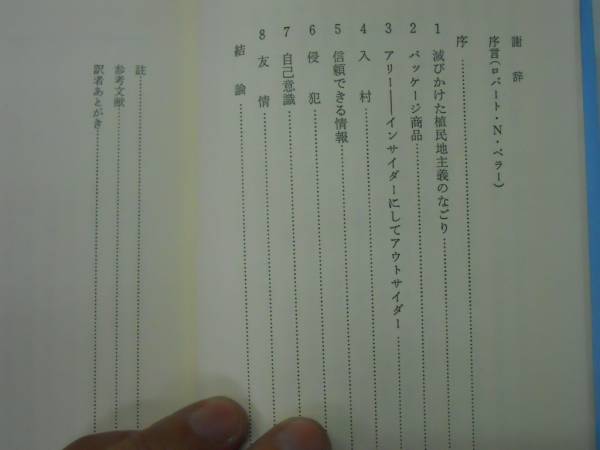 謝辞
序言(ロバート・N・ベラー)
序
1 滅びかけた植民地主義のなごり
2 パッケージ商品
3 アリー――インサイダーにしてアウトサイダー
4 入村
5 信頼できる情報
6 侵犯
7 自己意識
8 友情
結論
註
参考文献
訳者あとがき